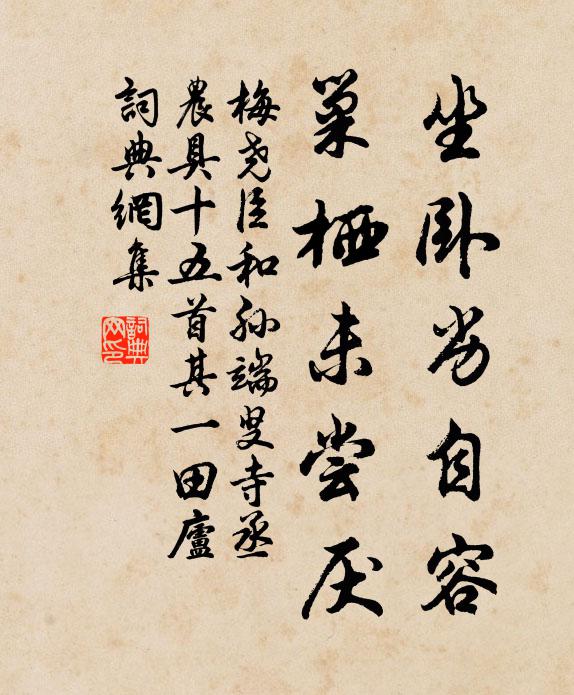 坐卧劣自容
巢栖未尝厌
梅尧臣和孙端叟寺丞
農具十五首其一田廬
詞典網集
詞典
网印